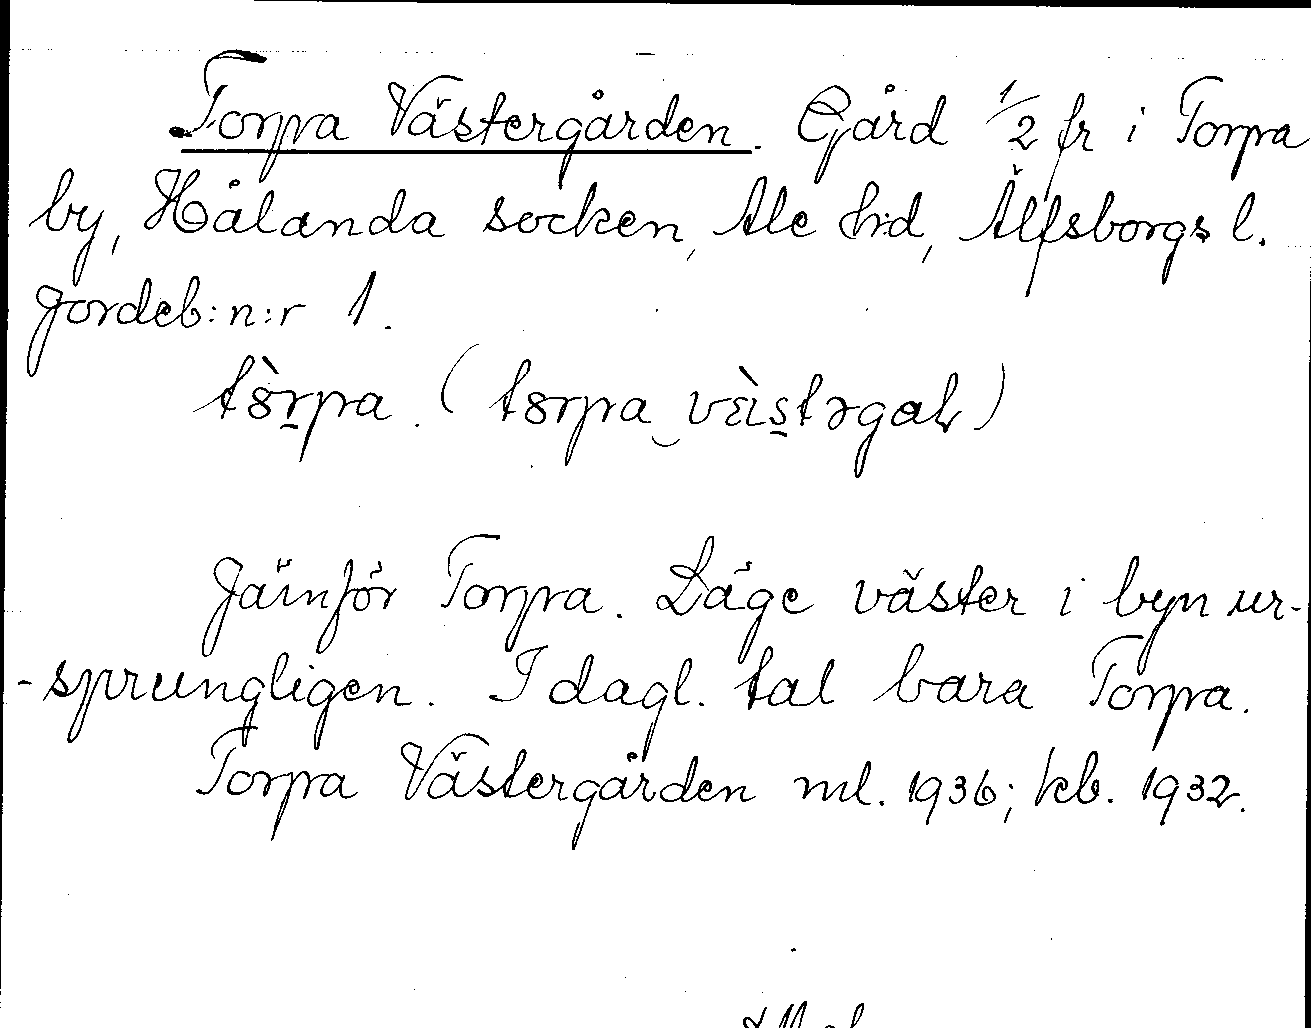 Torpa Västergården. Gård 1/2 fr i Torpa
by, Hålanda socken, Ale hd, Älfsborgs l.
Jordeb:n:r 1.
tòrpa. (torpa vä̀stərgaḷ)
Jämför Torpa. Läge väster i byn ur-
-sprungligen. I dagl. tal bara Torpa.
Torpa Västergården ml. 1936; kb. 1932.